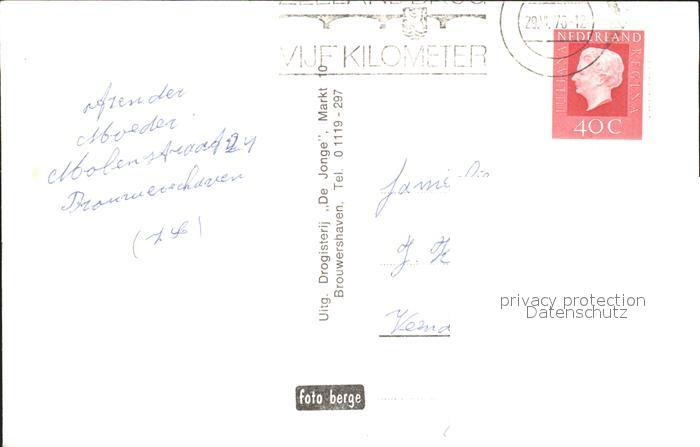 ZEELANDBRUG
VIJF KILOMETER
29.VI.76-12
NEDERLAND
JULIANA REGINA
40 C
Moeder
Molenstraat 24
Brouwershaven
Uitg. Drogisterij „De Jonge", Markt 10
Brouwershaven, Tel. 0 1119 - 297
Fami
J.
privacy protection
Datenschutz
foto berge